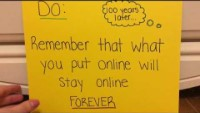 DO:
100 years
later...
Remember that what
you put online will
stay online
FOREVER